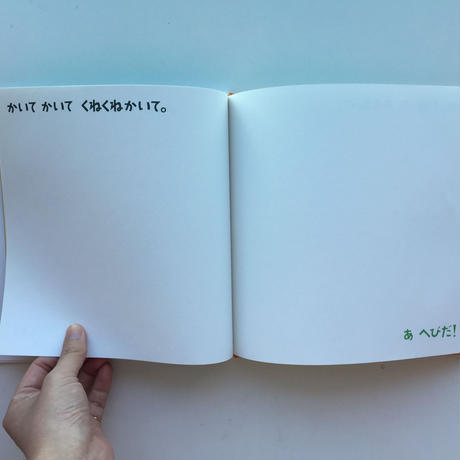 かいて かいて くねくねかいて。
あ へびだ!